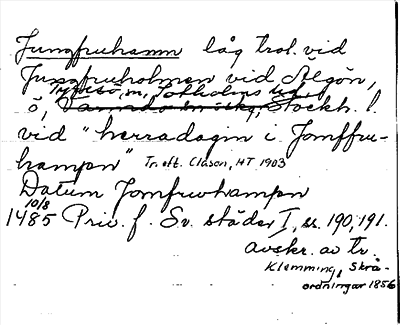 Jungfruhamn låg trol. vid
Jungfruholmen vid Älgön,
Tyresö, m, Sotholms hd
ö, Värmdö Stockh. l.
vid "herradagin i Jomffru-
hampn" Tr. eft. Clason, HT 1903
Datum Jomfrwhampn
10/8
1485 Priv. f. Sv. städer I, s. 190, 191.
avskr. av tr.
Klemming, Skrå-
ordningar 1856